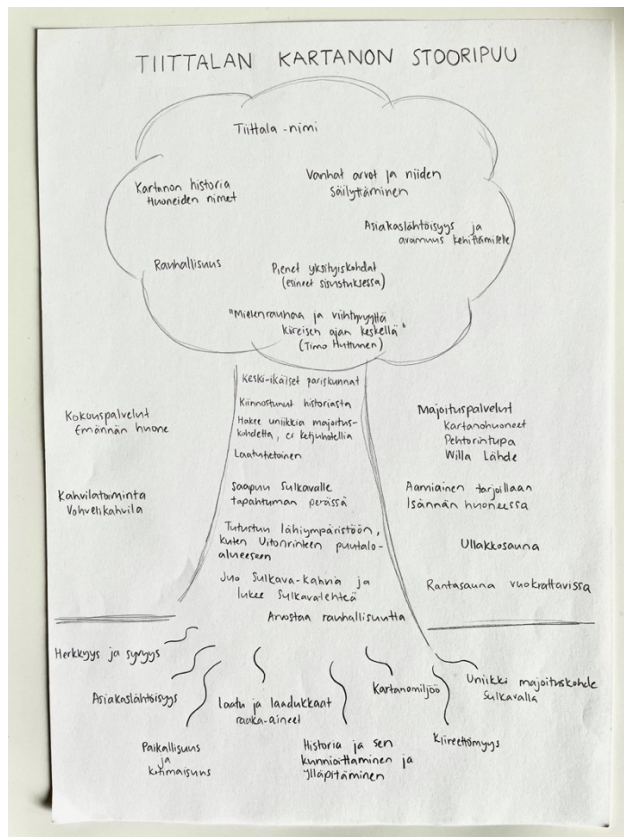 TIITTALAN KARTANON STOORIPUU
Tiittala -nimi
Kartanon historia
Huoneiden nimet
Vanhat arvot ja niiden
säilyttäminen
Asiakaslähtöisyys ja
avarruus kehittämiselle
Rauhallisuus
Pienet yksityiskohdat
(esineet sisustuksessa)
"Mielenrauhaa ja viihtyvyyttä
kireisen ajan keskellä"
(Timo Huttunen)
Keski-ikäiset pariskunnat
Kiinnostunut historiasta
Hakee uniikkia majoitus-
kohdetta, ei ketjuhotellia
Laatutietoinen
Saapuu Sulkavalle
tapahtuman perässä
Tutustuu lähiympäristöön,
kuten Uitonrinteen puutalo-
alueeseen
Juo Sulkava-kahvia ja
lukee Sulkavalehteä
Arvostaa rauhallisuutta
Kokouspalvelut
Emännän huone
Kahvilatoiminta
Vohvelikahvila
Majoituspalvelut
Kartanohuoneet
Pehtorintupa
Willa Lähde
Aamiainen tarjoillaan
Isännän huoneessa
Ullakkosauna
Rantasauna vuokrattavissa
Herkkyys ja syvyys
Asiakaslähtöisyys
Paikallisuus
ja
kotimaisuus
Laatu ja laadukkaat
raaka-aineet
Historia ja sen
kunnioittaminen ja
ylläpitäminen
Kartanomiljöö
Kiireettömyys
Uniikki majoituskohde
Sulkavalla